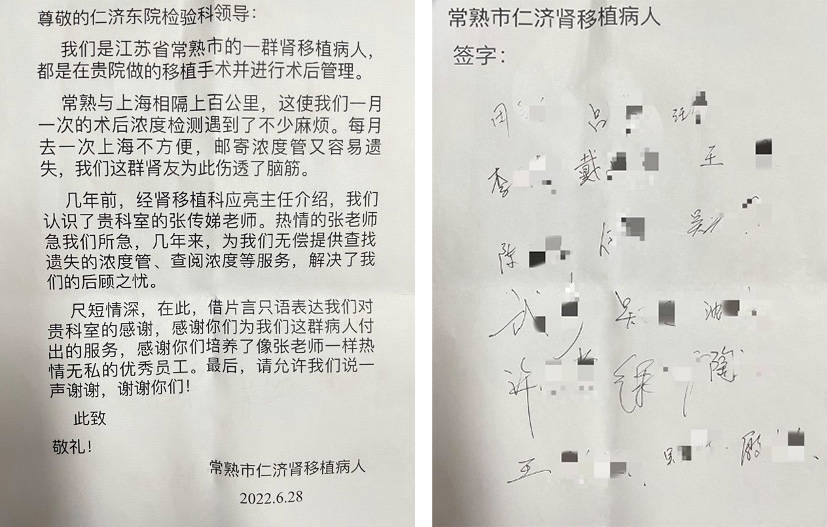 尊敬的仁济东院检验科领导：
我们是江苏省常熟市的一群肾移植病人，
都是在贵院做的移植手术并进行术后管理。
常熟与上海相隔上百公里，这使我们一月
一次的术后浓度检测遇到了不少麻烦。每月
去一次上海不方便，邮寄浓度管又容易遗
失，我们这群肾友为此伤透了脑筋。
几年前，经肾移植科应亮主任介绍，我们
认识了贵科室的张传娣老师。热情的张老师
急我们所急，几年来，为我们无偿提供查找
遗失的浓度管、查阅浓度等服务，解决了我
们的后顾之忧。
尺短情深，在此，借片言只语表达我们对
贵科室的感谢，感谢你们为我们这群病人付
出的服务，感谢你们培养了像张老师一样热
情无私的优秀员工。最后，请允许我们说一
声谢谢，谢谢你们！
此致
敬礼！
常熟市仁济肾移植病人
2022.6.28
常熟市仁济肾移植病人
签字：
周 吕
李 戴 王
陈 吴
武 吴
许 陶
王